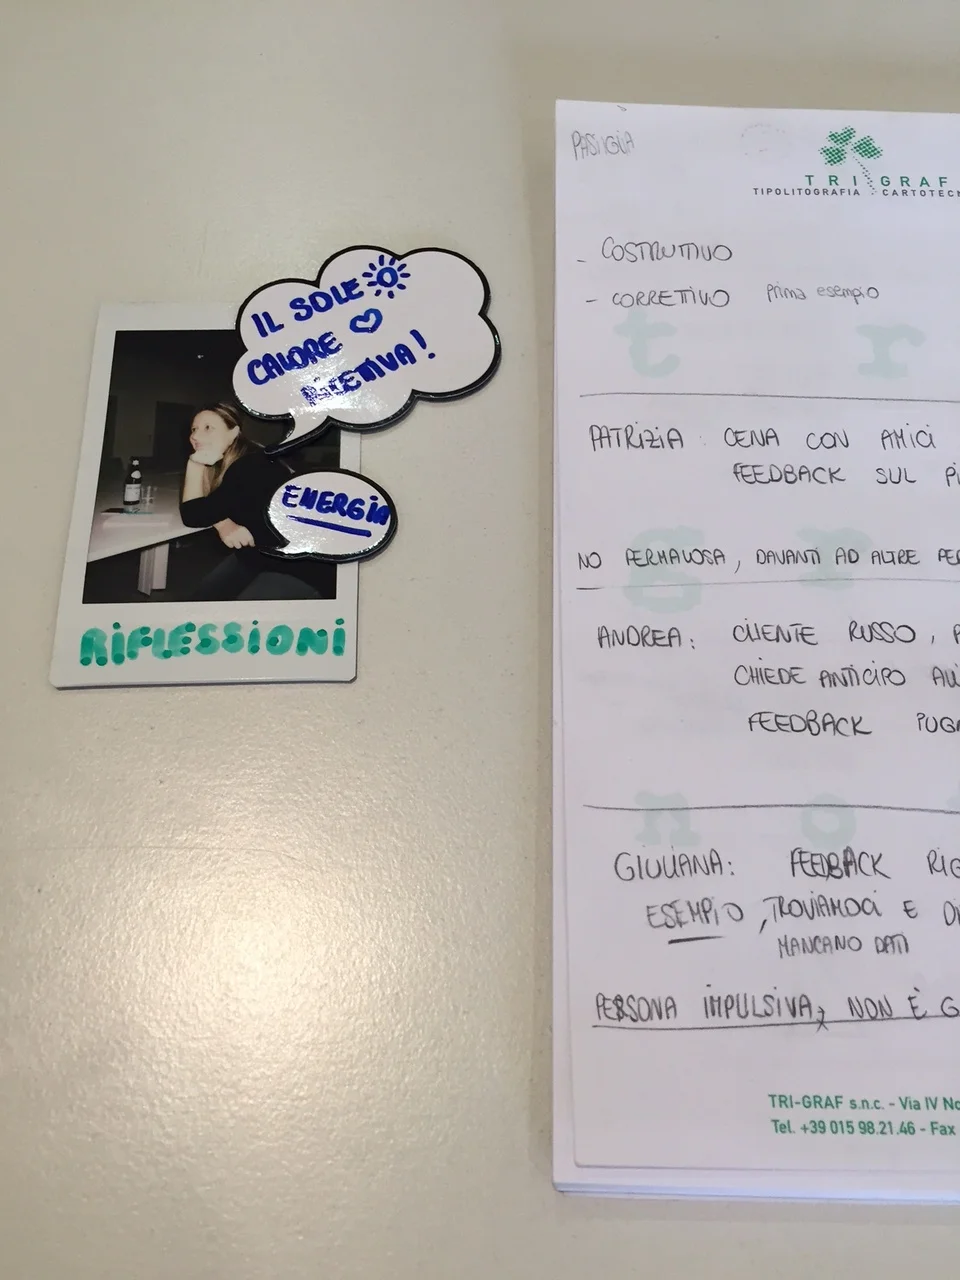 IL SOLE
CALORE
RICETTIVA!
ENERGIA
RIFLESSIONI
TRI GRAF
TIPOLITOGRAFIA CARTOTECN
- COSTRUTTIVO
- CORRETTIVO prima esempio
PATRIZIA: CENA CON AMICI
FEEDBACK SUL PI
NO PERMALOSA, DAVANTI AD ALTRE PER
ANDREA: CLIENTE RUSSO,
CHIEDE ANTICIPO
FEEDBACK
GIULIANA: FEEDBACK RIG
ESEMPIO, TROVIAMOCI E
MANCANO DATI
PERSONA IMPULSIVA, NON È G
TRI-GRAF s.n.c. - Via IV No
Tel. +39 015 98.21.46 - Fax